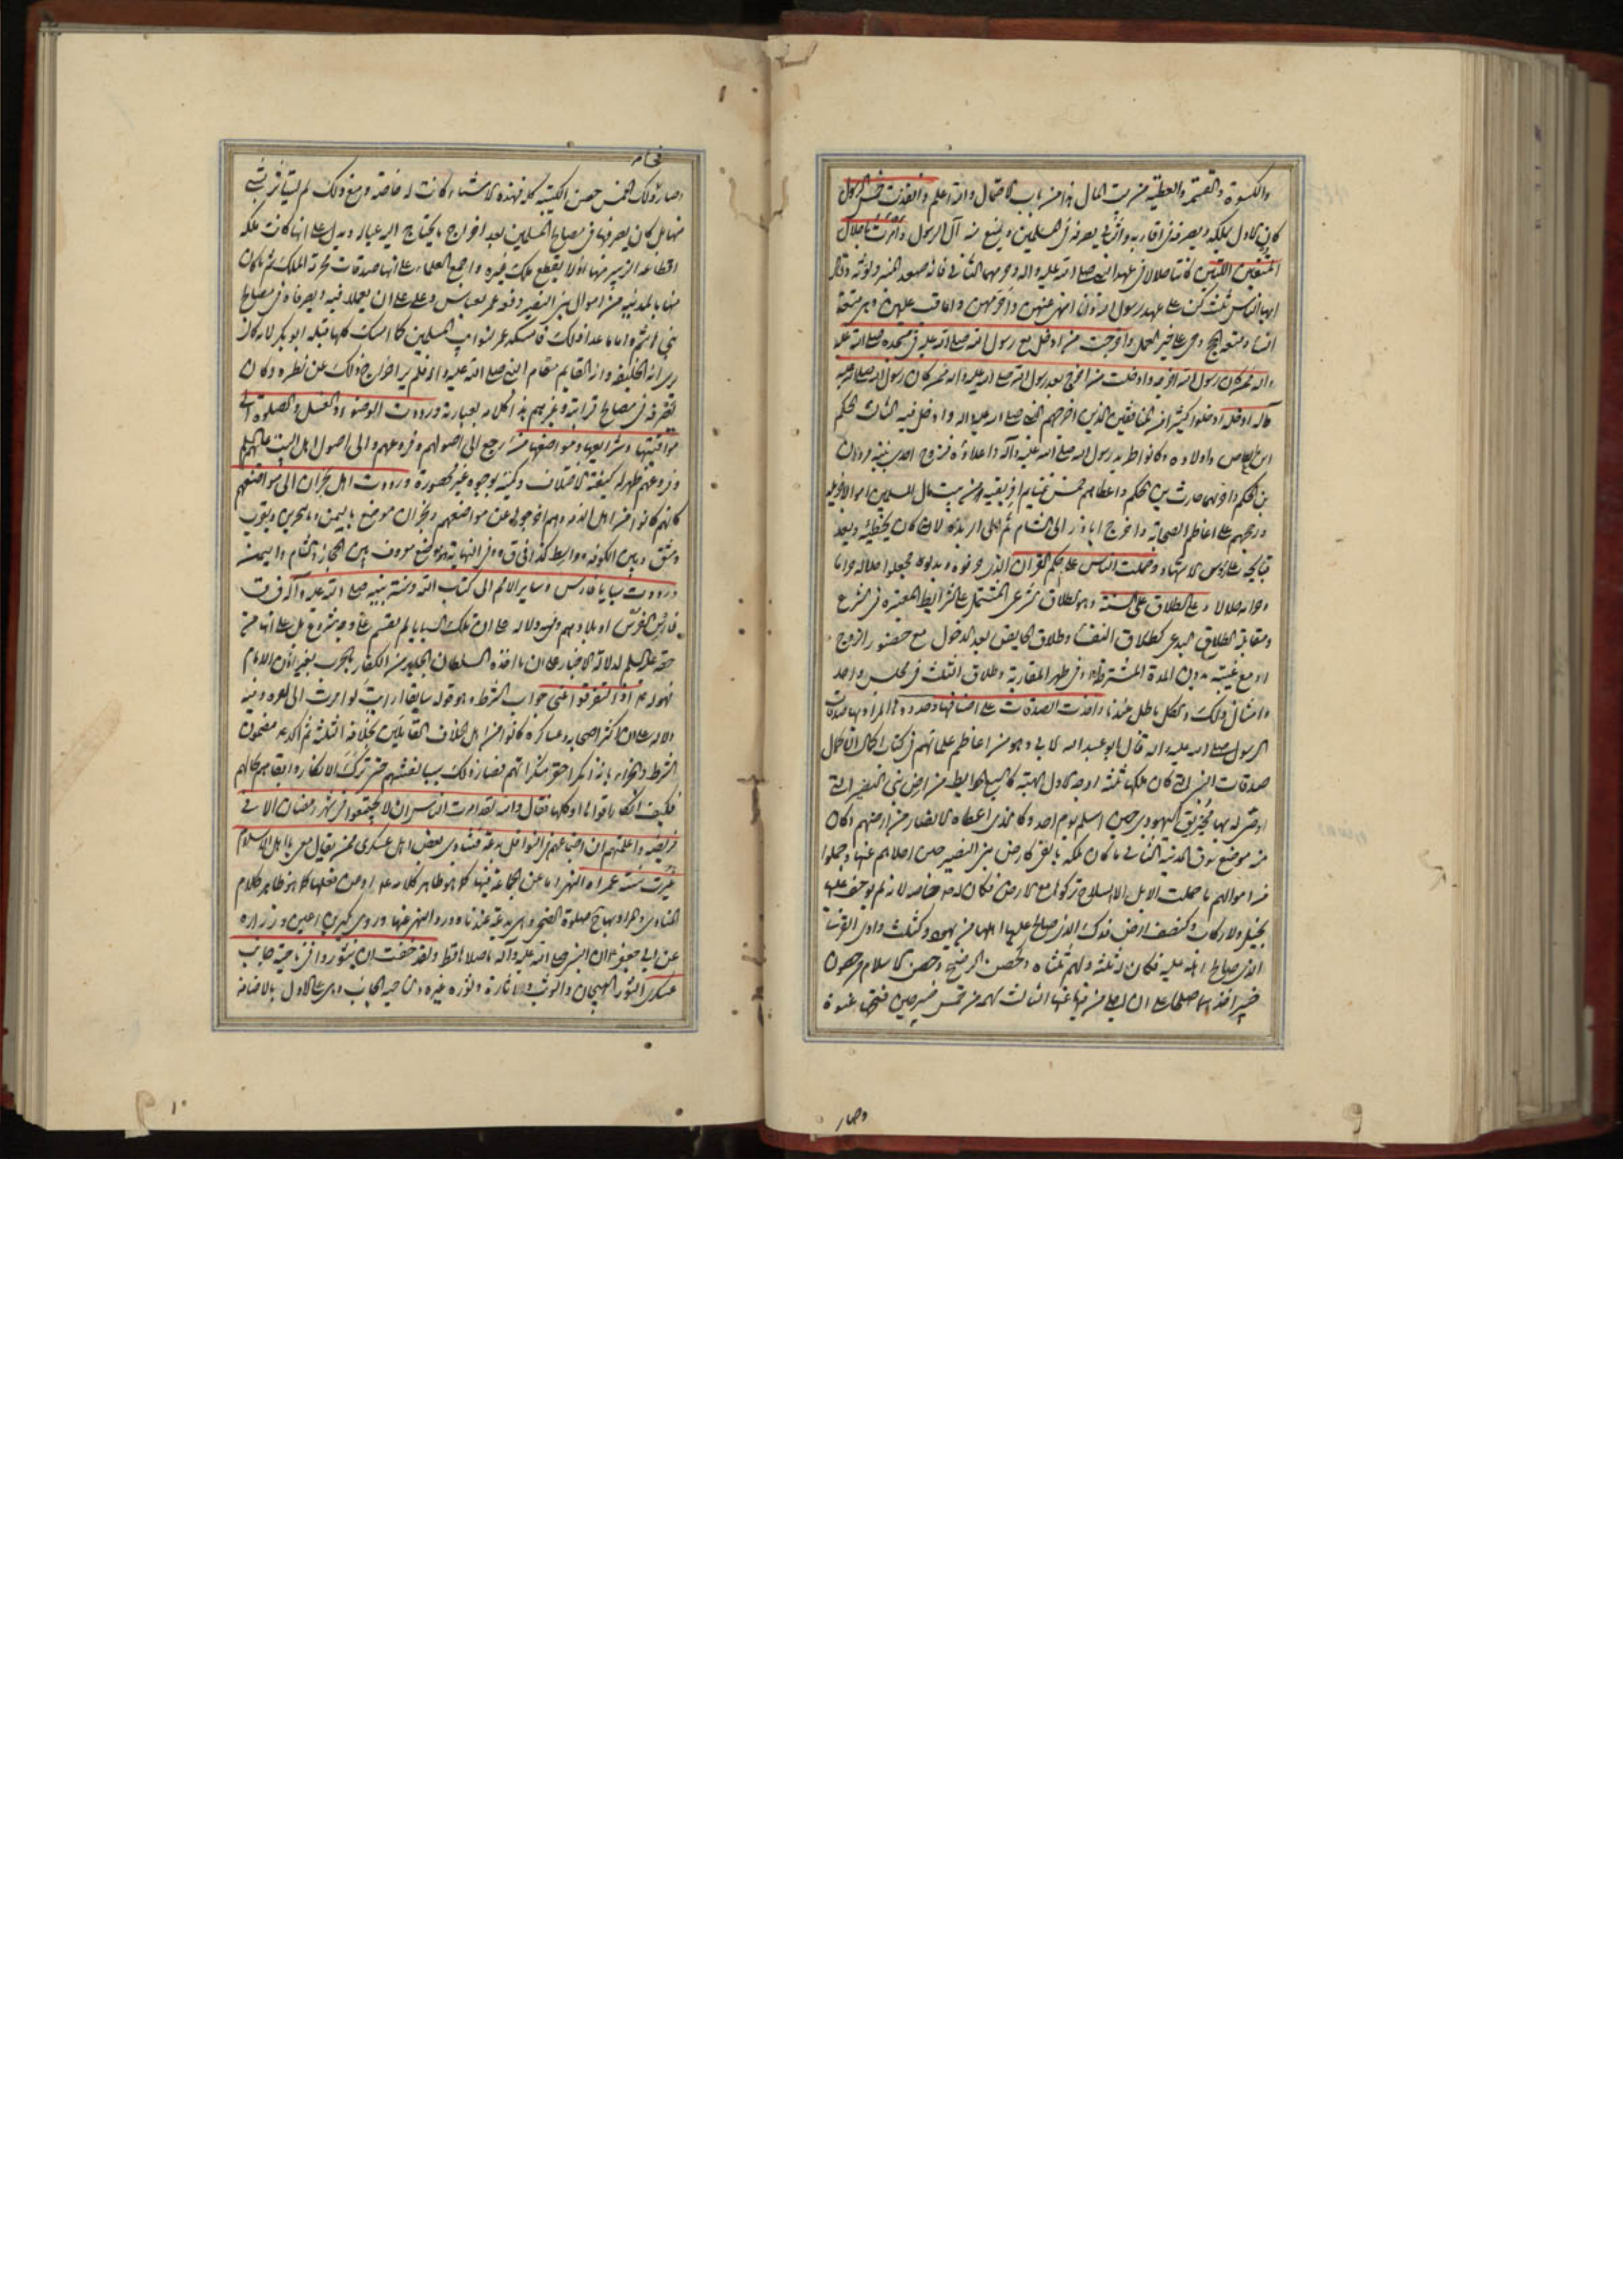 والكسوة والقسمة والعطية من بيت المال هذا من باب الاحتمال والله اعلم وانفذت خمس الرسول
كان الاول يملكه ويصرفه في اقاربه والثاني يصرفه في المسلمين ويمنع منه آل الرسول وامرت باحلال
المتعتين اللتين كانتا حلالا في عهد النبي صلى الله عليه واله وحرمهما الثاني فانه صعد المنبر وقال
ايها الناس ثلث كن على عهد رسول الله وانا انهى عنهن واحرمهن واعاقب عليهن وهي متعة
النساء ومتعة الحج وحي على خير العمل واخرجت من ادخل مع رسول الله صلى الله عليه في مسجده صلى الله عليه
واله ممن كان رسول الله اخرجه وادخلت من اخرج بعد رسول الله صلى الله عليه واله ممن كان رسول الله صلى الله عليه
واله ادخله ادخلوا كثيرا من المنافقين الذين اخرجهم النبي صلى الله عليه واله وادخل فيه الثالث الحكم
ابن العاص واولاده وكانوا طريد رسول الله صلى الله عليه وآله واعداؤه فزوج احدى بنتيه مروان
بن الحكم واخرهما حارث بن الحكم واعطاهم خمس غنايم افريقيه ومن بيت مال المسلمين اموالا جزيله
ورجحهم على اعاظم الصحابة واخرج اباذر الى الشام ثم الى الربذه لانه كان يخطئه ويعد
قبايحه على رؤس الاشهاد وحملت الناس على حكم القرآن الذي حرفوه وبدلوه فجعلوا حلاله حراما
وحرامه حلالا وعلى الطلاق على السنة وهو طلاق شرعي المشتمل على الشرايط المعتبره في الشرع
ومقابله الطلاق البدعي كطلاق النفساء وطلاق الحايض بعد الدخول مع حضور الزوج
او مع غيبته بدون المدة المشترطة وفي طهر المقاربة وطلاق الثلث في مجلس واحد
وامثال ذلك والكل باطل عندنا واخذت الصدقات على اصنافها وحدودها المراد بها صدقات
الرسول صلى الله عليه واله قال ابو عبد الله الابي وهو من اعاظم علمائهم في كتاب اكمال الاكمال
صدقات النبي التي كان ملكها ثلثة اوجه الاول الهبة كالسبع الحوايط من ارض بني النضير التي
اوصى له بها مخيريق اليهودي حين اسلم يوم احد وكالذي اعطاه الانصار من ارضهم وكان
منه موضع سوق المدينة الثاني ما كان ملكه بالفيء كارض بني النضير حين اجلاهم عنها وحملوا
من اموالهم ما حملت الابل الا السلاح وتركوا مع الارض فكان له خاصة لانه لم يوجف عليه
بخيل ولا ركاب وكنصف ارض فدك الذي صالح عليها اهلها من يهود وكثلث وادي القرى
الذي صالح اهله عليه فكان له ثلثه ولهم ثلثاه وكحصن الوطيح وحصن السلالم وهما من حصون
خيبر اخذهما صلحا على ان اجلى من فيهما عنهما الثالث سهمه من خمس خيبر حين فتحها عنوة
وصار
فجاء
وصار ذلك الخمس حصن الكتيبة كله فهذه الاشياء كانت له خاصة ومع ذلك لم يستأثر بشيء
منها بل كان يصرفها في مصالح المسلمين بعد اخراج ما يحتاج اليه عياله ويدل على انها كانت ملكه
اقطاعه الزبير منها اذ لا يقطع ملك غيره واجمع العلماء على انها صدقات محرمة الملك ثم ما كان
منها بالمدينه من اموال بني النضير دفعه عمر لعباس وعلي على ان يعملا فيه ويصرفاه في مصالح
بني هاشم واما ما عدا ذلك فامسكه عمر لنوايب المسلمين كما امسك كلها قبله ابو بكر لانه كان
يرى انه الخليفة وانه القايم مقام النبي صلى الله عليه واله فلم ير اخراج ذلك عن نظره وكان
يصرفه في مصالح قرابته وغيرهم هذا كلامه بعبارته ورددت الوضوء والغسل والصلوة الى
مواقيتها وشرايعها ومواضعها من رجع الى اصولهم وفروعهم والى اصول اهل البيت عليهم السلام
وفروعهم ظهر له كيفية الاختلاف وكميته بوجوه غير محصورة ورددت اهل نجران الى مواضعهم
كانهم كانوا من اهل الذمه وهم اخرجوا عن مواضعهم ونجران موضع باليمن وبالبحرين وبقرب
دمشق وبين الكوفه وواسط كذا في ق وفي النهاية هو موضع معروف بين الحجاز والشام واليمن
ورددت سبايا فارس وساير الامم الى كتاب الله وسنة نبيه صلى الله عليه وآله في ق
فارس الفرس او بلادهم وفيه دلالة على ان تلك السبايا لم يقسم على وجه مشروع بل على انها من
حقه عليه السلم لدلالة الاخبار على ان ما اخذه السلطان الجاير من الكفار بالحرب بغير اذن الامام
فهو له ع اذا لتفرقوا عني جواب الشرط وهو قوله سابقا ارايت لو امرت الى اخره وفيه
دلالة على ان اكثر اصحابه وعساكره كانوا من اهل الخلاف القايلين بخلافة الثلثة ثم اكد ع مضمون
الشرط والجزاء بانه انكر احقر منكراتهم فصار ذلك سببا لغشهم حتى ترك الانكار وابقاهم بحالهم
فكيف انكار ما قوالها او كلها فقال والله لقد امرت الناس ان لا يجتمعوا في شهر رمضان الا في
فريضه واعلمتهم ان اجتماعهم في النوافل بدعة فتنادى بعض اهل عسكري ممن يقاتل معي يا اهل الاسلام
غيرت سنة عمر اه النهي اما عن الجماعة فيها كما هو ظاهر كلامه عليه او عن فعلها كما هو ظاهر كلام
المنادي والمراد بها ح صلوة الضحى وهي بدعة عندنا وورد النهي عنها وروى بكير بن اعين وزراره
عن ابي جعفر ع ان النبي صلى الله عليه وآله ما صلاها قط ولقد خفت ان يثوروا في ناحية جانب
عسكري الثور الهيجان والوثب والاثارة وثوره غيره والناحية الجانب وهي على الاول بالاضافة